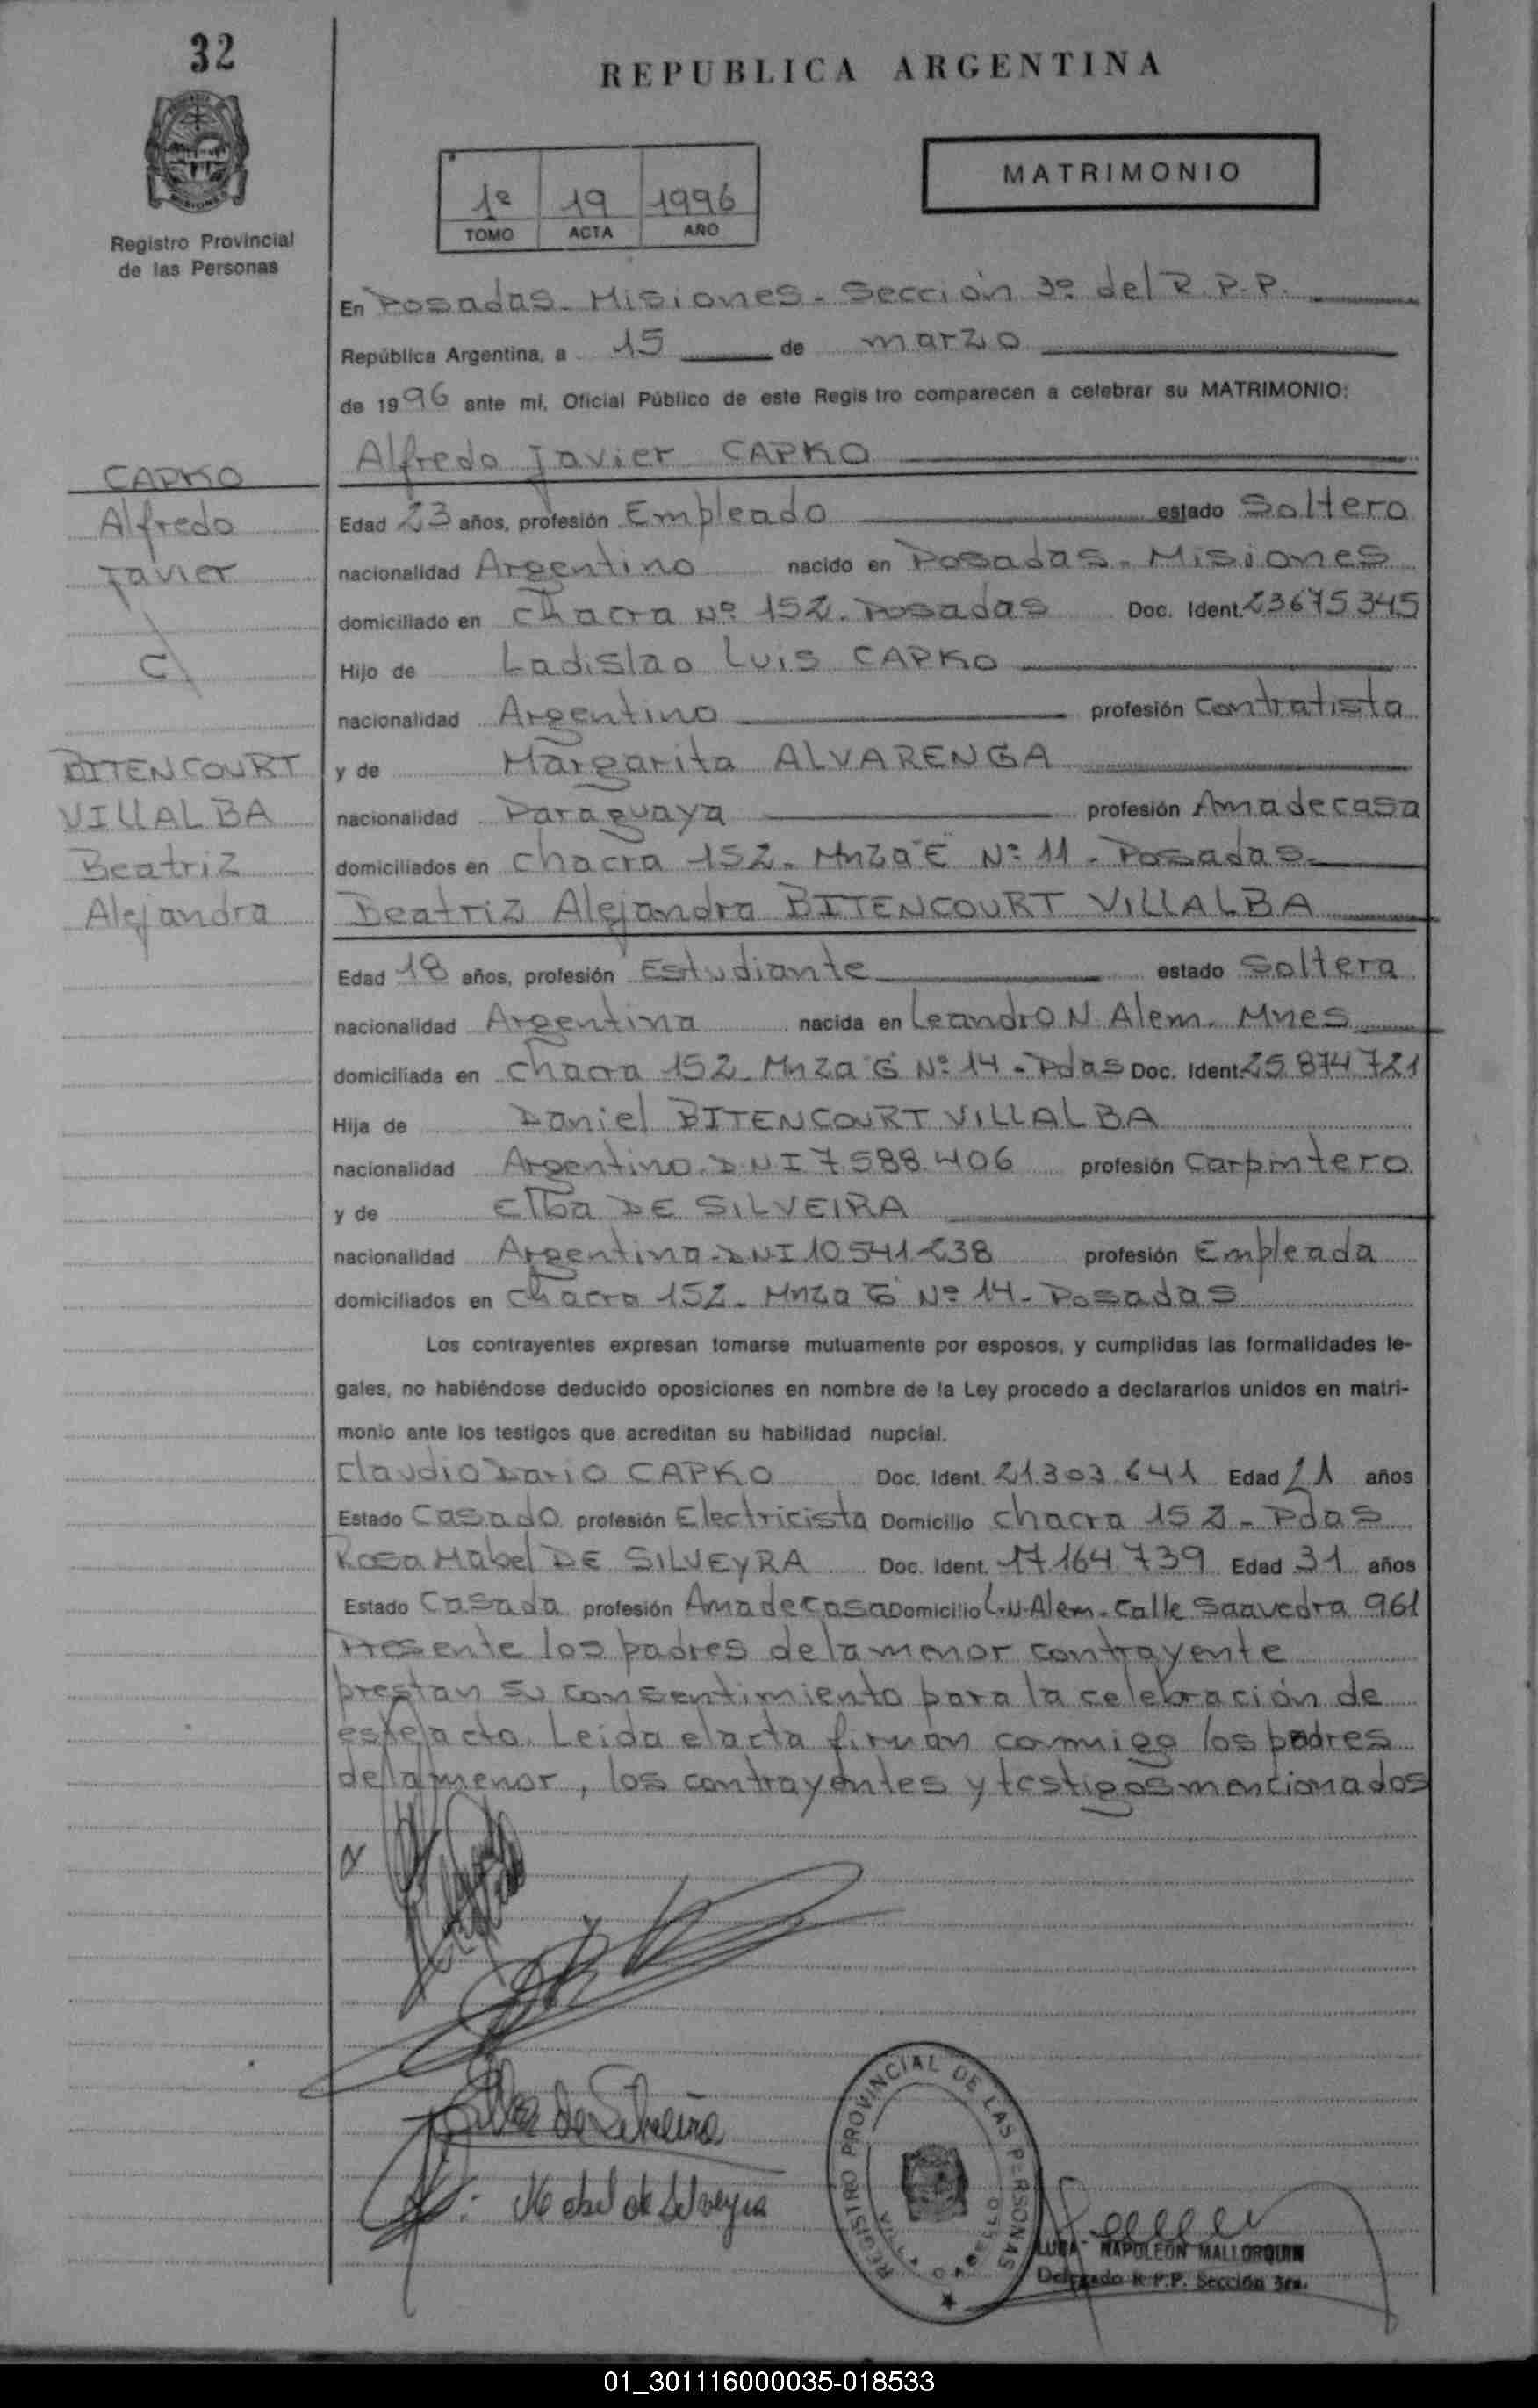 32
REPUBLICA ARGENTINA
MATRIMONIO
1º 19 1996
TOMO ACTA AÑO
Registro Provincial
de las Personas
En Posadas - Misiones - Sección 3º del R.P.P.
República Argentina, a 15 de marzo
de 1996 ante mí, Oficial Público de este Registro comparecen a celebrar su MATRIMONIO:
CAPKO
Alfredo
Javier
c/
BITENCOURT
VILLALBA
Beatriz
Alejandra
Alfredo Javier CAPKO
Edad 23 años, profesión Empleado estado Soltero
nacionalidad Argentino nacido en Posadas - Misiones
domiciliado en Chacra Nº 152 - Posadas Doc. Ident. 23675345
Hijo de Ladislao Luis CAPKO
nacionalidad Argentino profesión Contratista
y de Margarita ALVARENGA
nacionalidad Paraguaya profesión Amadecasa
domiciliados en Chacra 152 - Mnza E Nº 11 - Posadas -
Beatriz Alejandra BITENCOURT VILLALBA
Edad 18 años, profesión Estudiante estado Soltera
nacionalidad Argentina nacida en Leandro N. Alem - Mnes
domiciliada en Chacra 152 - Mnza G Nº 14 - Pdas Doc. Ident. 25.874.721
Hija de Daniel BITENCOURT VILLALBA
nacionalidad Argentino - DNI 7.588.406 profesión Carpintero
y de Elba DE SILVEIRA
nacionalidad Argentina - DNI 10.541.238 profesión Empleada
domiciliados en Chacra 152 - Mnza G Nº 14 - Posadas
Los contrayentes expresan tomarse mutuamente por esposos, y cumplidas las formalidades le-
gales, no habiéndose deducido oposiciones en nombre de la Ley procedo a declararlos unidos en matri-
monio ante los testigos que acreditan su habilidad nupcial.
Claudio Dario CAPKO Doc. Ident. 21.303.641 Edad 21 años
Estado Casado profesión Electricista Domicilio Chacra 152 - Pdas
Rosa Mabel DE SILVEYRA Doc. Ident. 17.164.739 Edad 31 años
Estado Casada profesión Amadecasa Domicilio L.N. Alem - Calle Saavedra 961
Presente los padres de la menor contrayente
prestan su consentimiento para la celebración de
este acto. Leida el acta firman conmigo los padres
de la menor, los contrayentes y testigos mencionados
Elba de Silveira
Mabel de Silveyra
REGISTRO PROVINCIAL DE LAS PERSONAS
NAPOLEON MALLORQUIN
Delegado R.P.P. Sección 3ra.
01_301116000035-018533